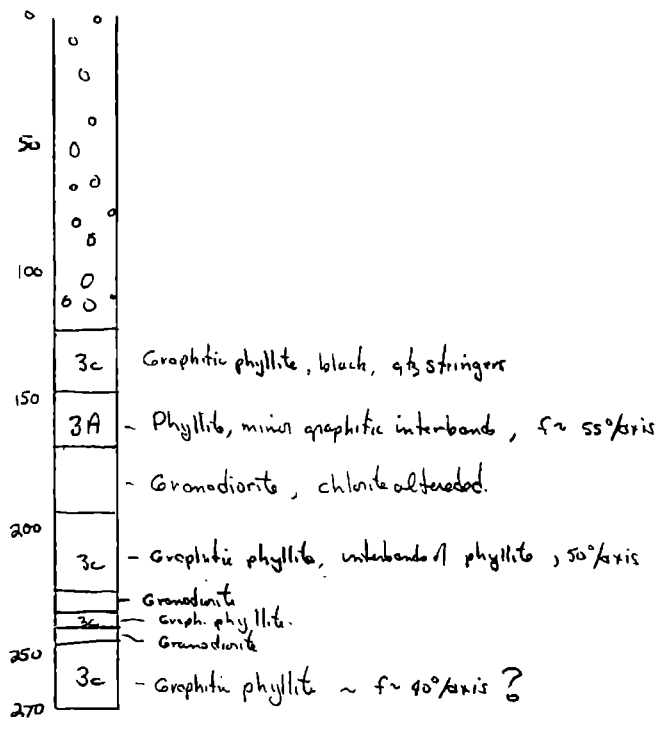 0
50
100
3c Graphitic phyllite, black, qtz stringers
150
3A - Phyllite, minor graphitic interbands, f~ 55°/axis
- Granodiorite, chlorite altereded.
200
3c - Graphitic phyllite, interbands of phyllite, 50°/axis
- Granodiorite
3c - Graph. phyllite.
- Granodiorite
250
3c - Graphitic phyllite ~ f~ 90°/axis ?
270